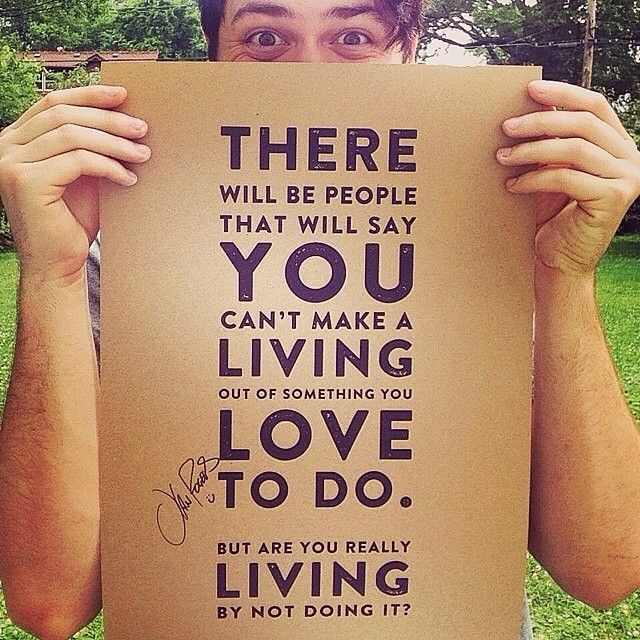 THERE
WILL BE PEOPLE
THAT WILL SAY
YOU
CAN'T MAKE A
LIVING
OUT OF SOMETHING YOU
LOVE
TO DO.
BUT ARE YOU REALLY
LIVING
BY NOT DOING IT?